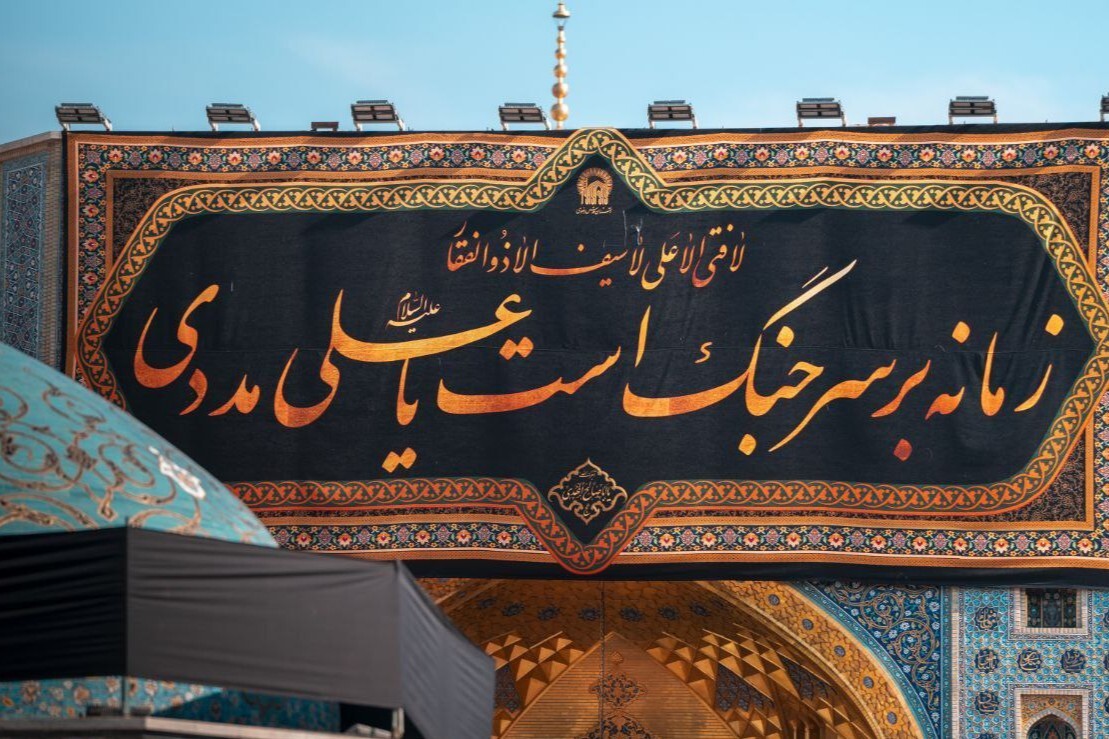 لا فتی الا علی لا سیف الا ذوالفقار
زمانه بر سر جنگ است یا علی مددی
علیه السلام